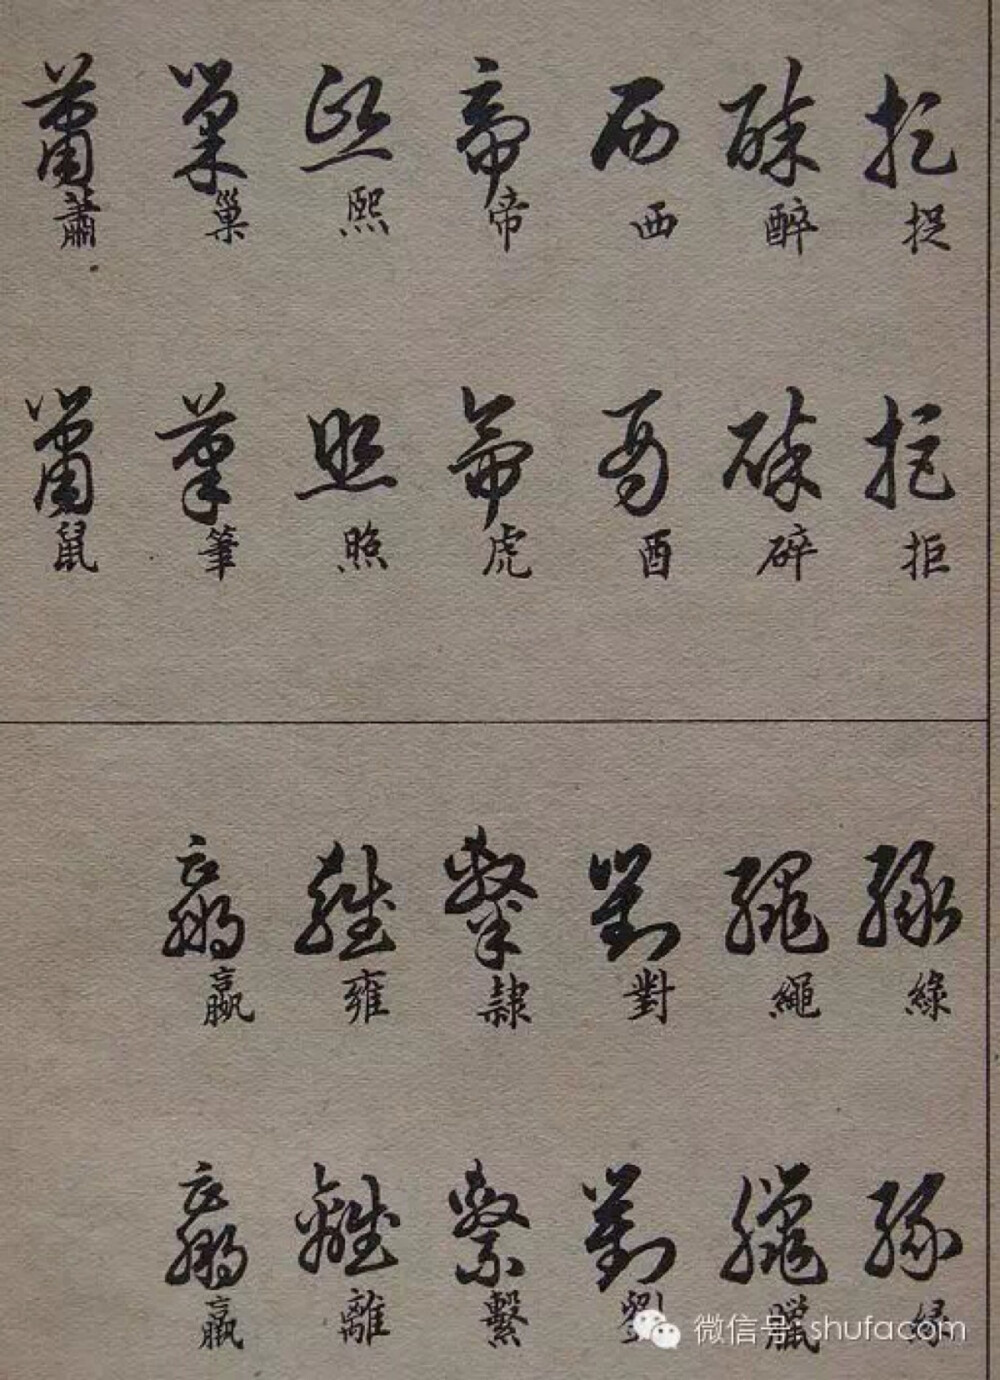 捉 醉 西 帝 熙 巢 蕭
拒 碎 酉 虎 照 筆 鼠
綠 繩 對 隸 雍 嬴
緣 臘 劉 繫 離 羸
微信号: shufacom